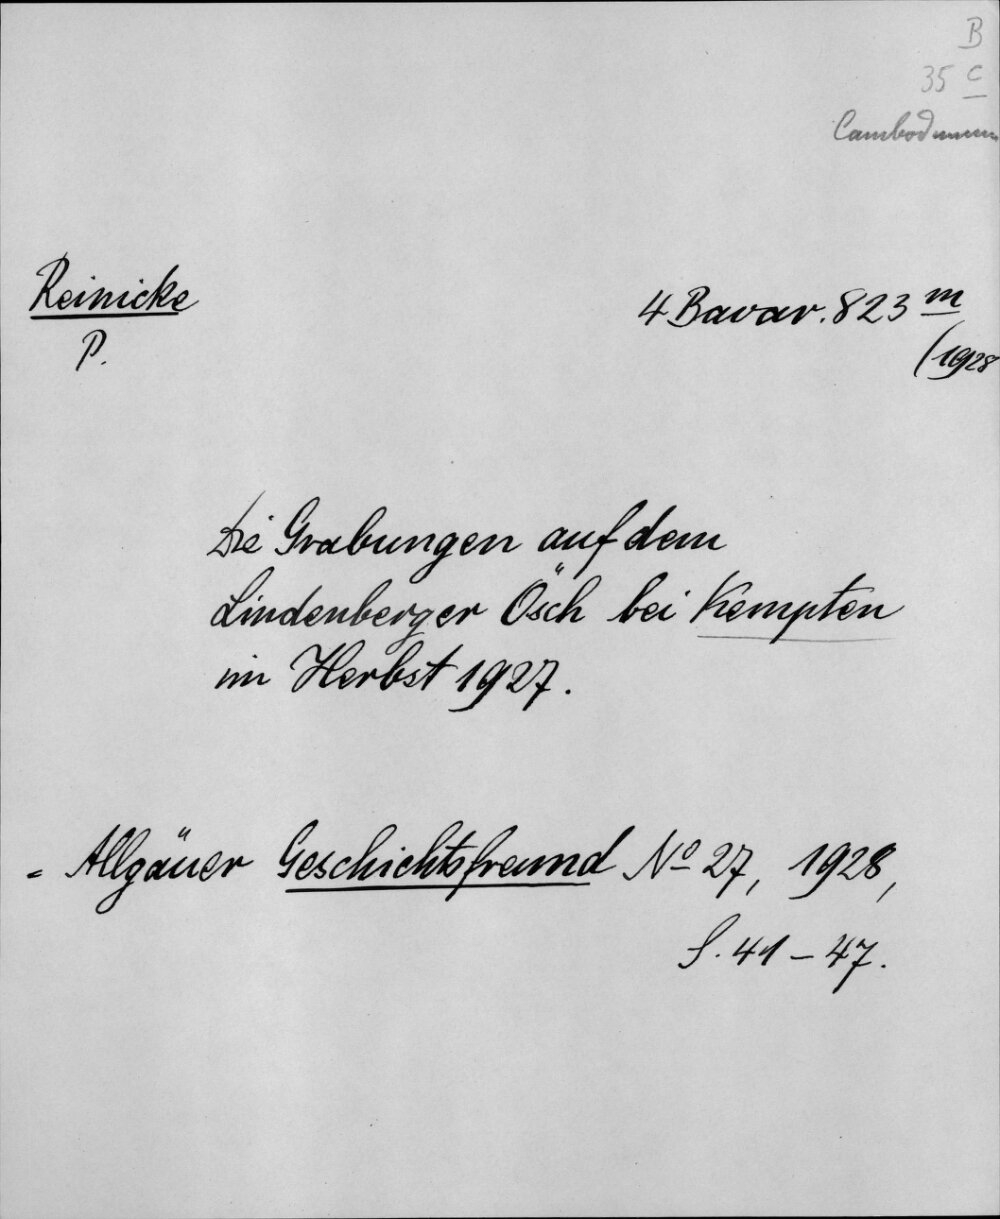 B
35 c
Cambodunum
Reinicke
P.
4 Bavar. 823 m
(1928
Die Grabungen auf dem
Lindenberger Ösch bei Kempten
im Herbst 1927.
= Allgäuer Geschichtsfreund No 27, 1928,
S. 41-47.